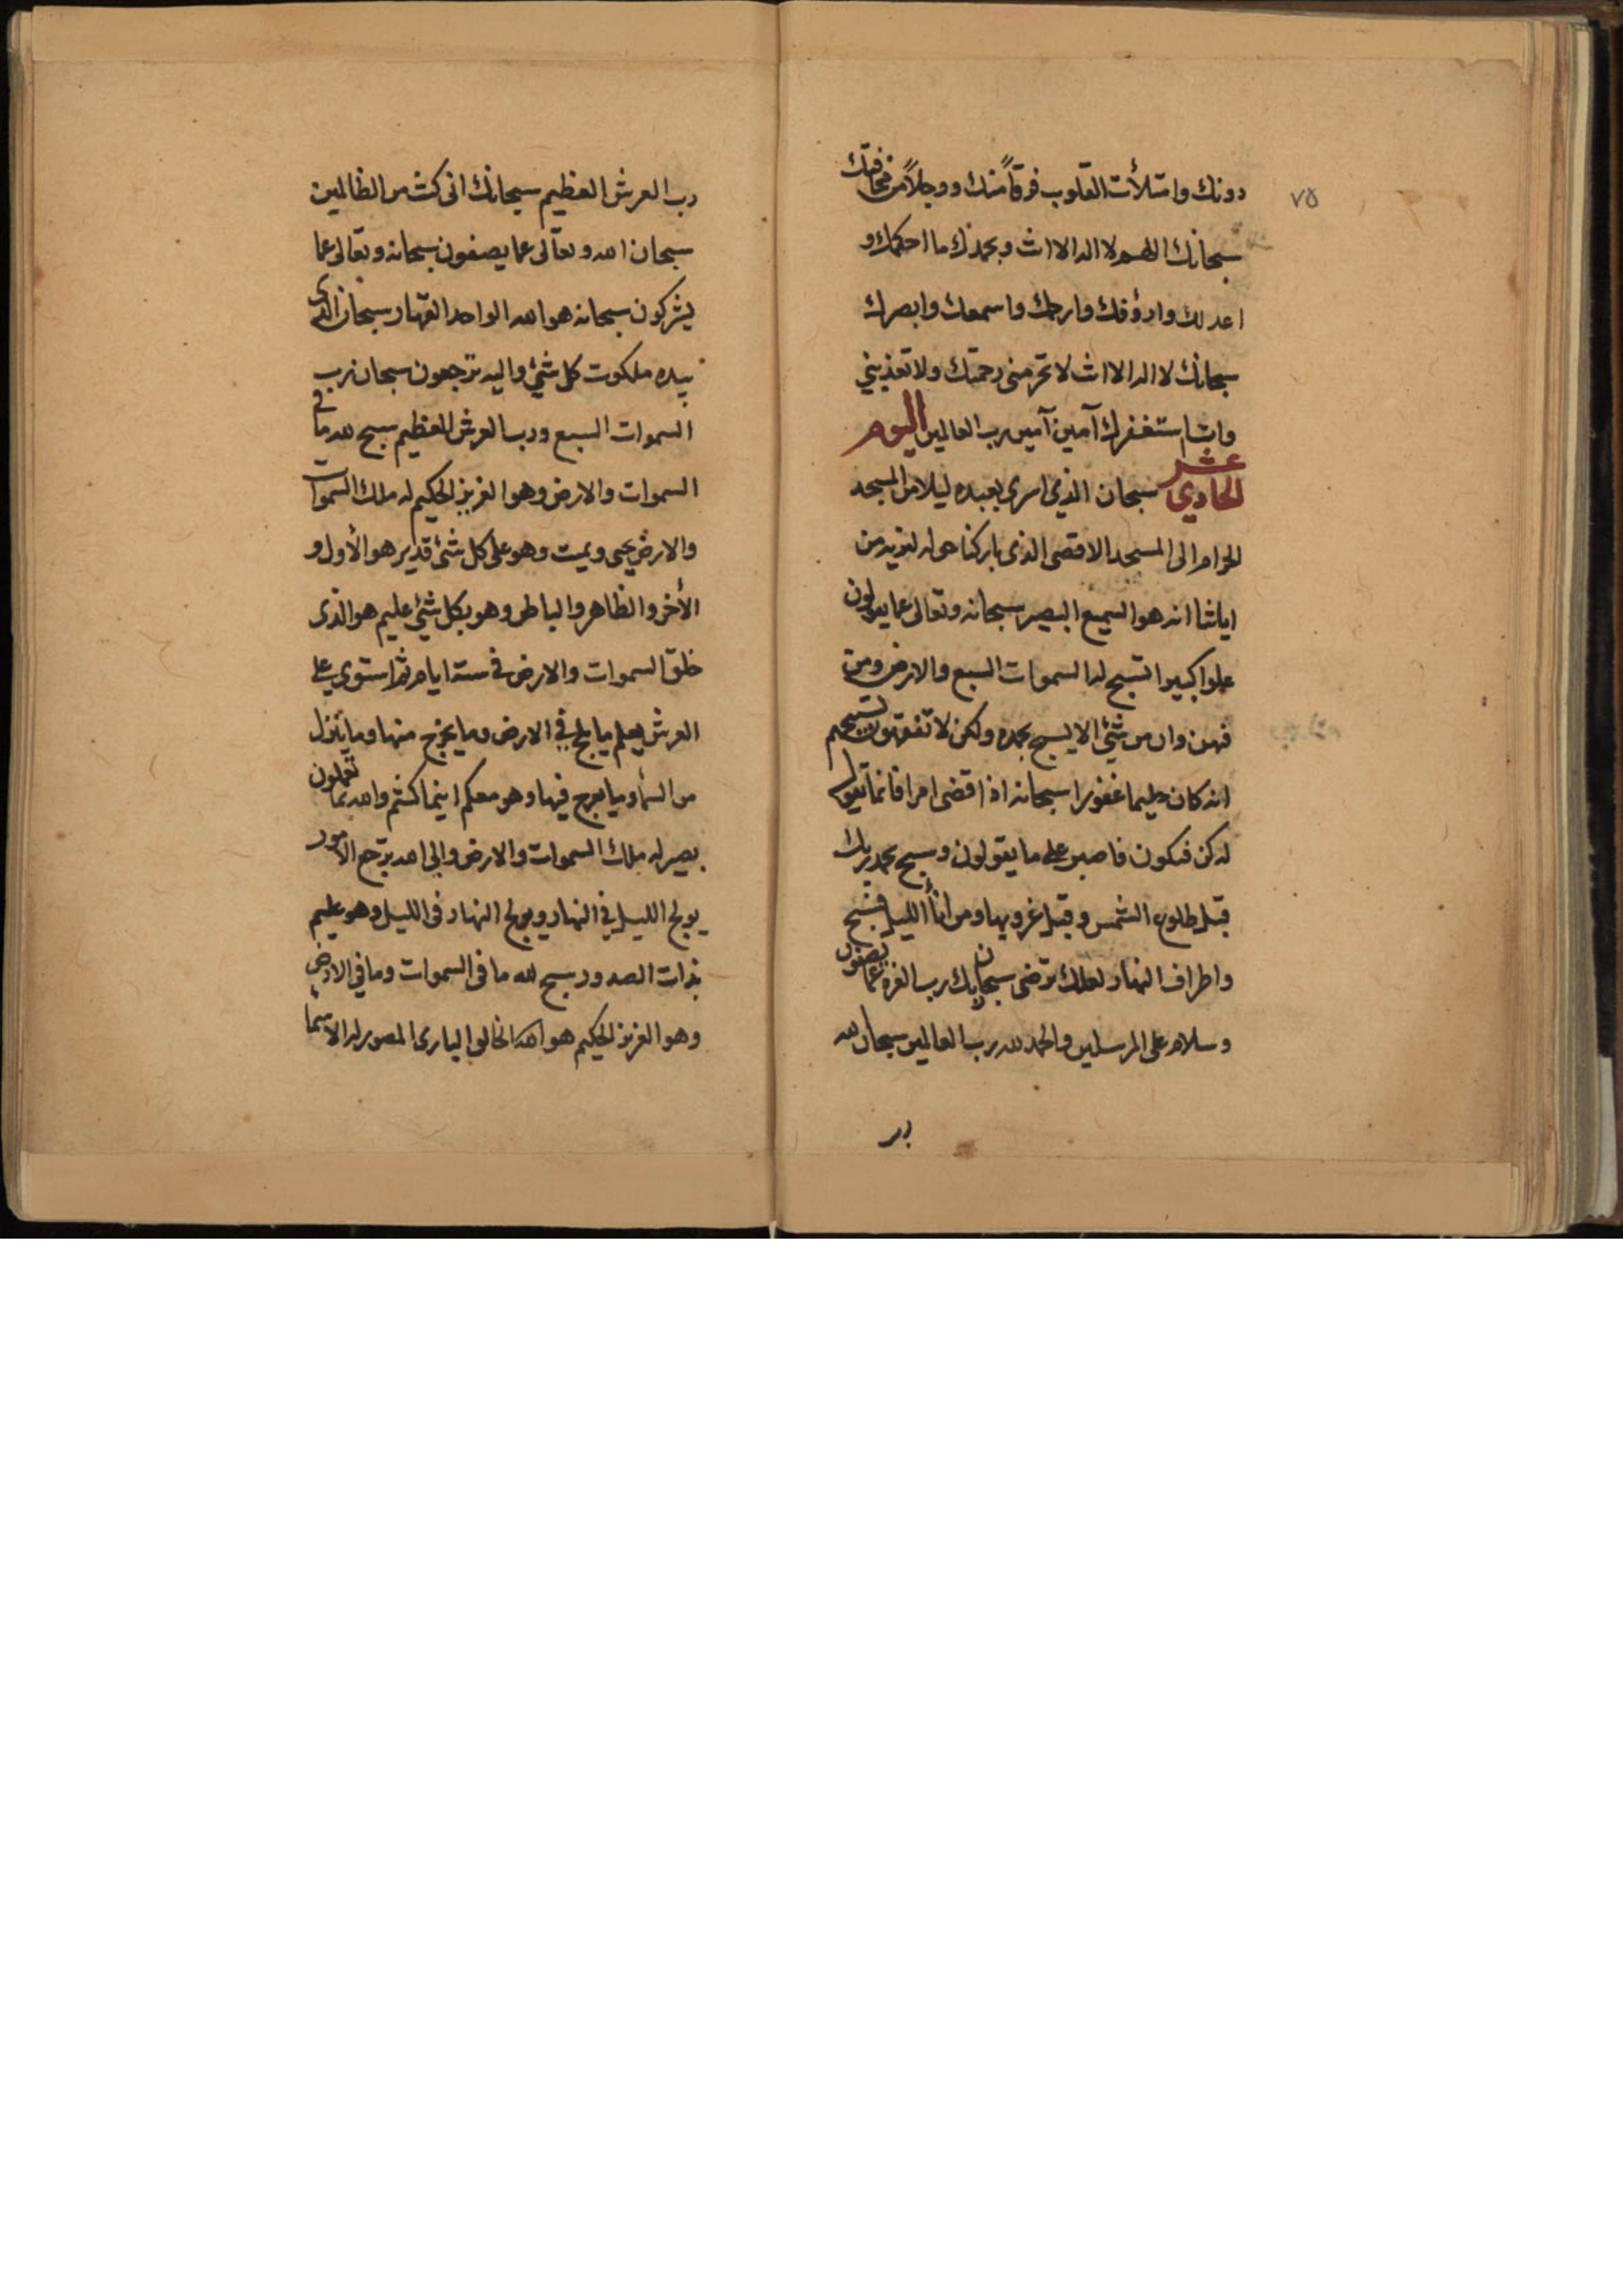 ٧٥
دونك وامتلأت القلوب فرقاً منك ووجلاً من مخافتك
سبحانك اللهم لا اله الا انت وبحمدك ما احكمك و
اعدلك وارؤفك وارحمك واسمعك وابصرك
سبحانك لا اله الا انت لا تحرمني رحمتك ولا تعذبني
وانا استغفرك آمين آمين رب العالمين اليوم
الحادي عشر سبحان الذي اسرى بعبده ليلا من المسجد
الحرام الى المسجد الاقصى الذى باركنا حوله لنريه من
اياتنا انه هو السميع البصير سبحانه وتعالى عما يقولون
علوا كبيرا تسبح له السموات السبع والارض ومن
فيهن وان من شئ الا يسبح بحمده ولكن لا تفقهون تسبيحهم
انه كان حليما غفورا سبحانه اذا قضى امرا فانما يقول
له كن فيكون فاصبر على ما يقولون وسبح بحمد ربك
قبل طلوع الشمس وقبل غروبها ومن اناۤء الليل فسبح
واطراف النهار لعلك ترضى سبحان ربك رب العزة عما يصفون
وسلام على المرسلين والحمد لله رب العالمين سبحان الله
رب
رب العرش العظيم سبحانك انى كنت من الظالمين
سبحان الله وتعالى عما يصفون سبحانه وتعالى عما
يشركون سبحانه هو الله الواحد القهار سبحان الذى
بيده ملكوت كل شئ واليه ترجعون سبحان رب
السموات السبع ورب العرش العظيم سبح لله ما في
السموات والارض وهو العزيز الحكيم له ملك السموات
والارض يحيى ويميت وهو على كل شئ قدير هو الأول و
الأخر والظاهر والباطن وهو بكل شئ عليم هو الذى
خلق السموات والارض في ستة ايام ثم استوى على
العرش يعلم ما يلج في الارض وما يخرج منها وما ينزل
من السمآء وما يعرج فيها وهو معكم اينما كنتم والله بما تعملون
بصير له ملك السموات والارض والى الله ترجع الامور
يولج الليل في النهار ويولج النهار فى الليل وهو عليم
بذات الصدور سبح لله ما فى السموات وما في الارض
وهو العزيز الحكيم هو الله الخالق البارى المصور له الاسمآء